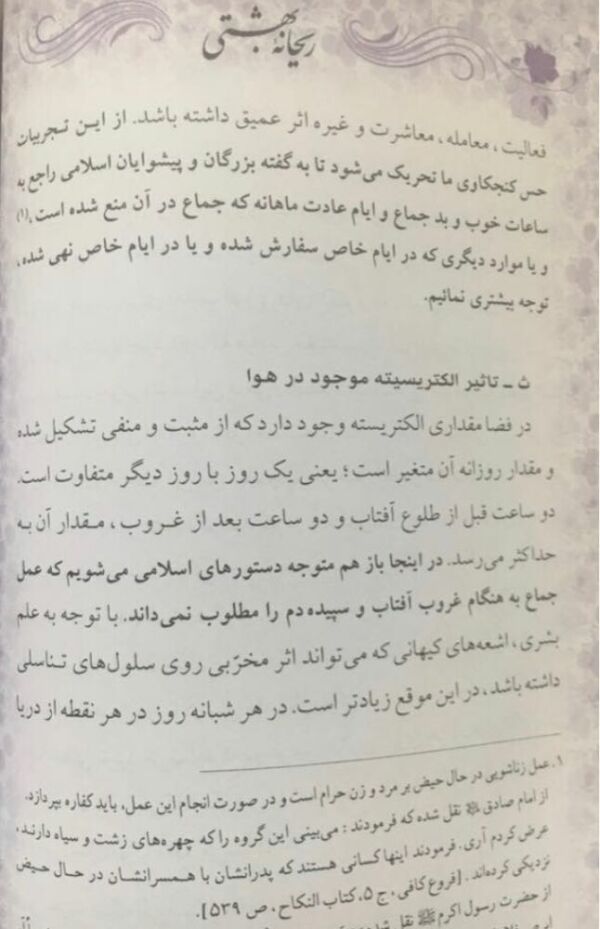 ریحانهٔ بهشتی
فعالیت، معامله، معاشرت و غیره اثر عمیق داشته باشد. از این تجربیات
حس کنجکاوی ما تحریک می‌شود تا به گفته بزرگان و پیشوایان اسلامی راجع به
ساعات خوب و بد جماع و ایام عادت ماهانه که جماع در آن منع شده است،(۱)
و یا موارد دیگری که در ایام خاص سفارش شده و یا در ایام خاص نهی شده،
توجه بیشتری نمائیم.
ث ـ تاثیر الکتریسیته موجود در هوا
در فضا مقداری الکتریسته وجود دارد که از مثبت و منفی تشکیل شده
و مقدار روزانه آن متغیر است؛ یعنی یک روز با روز دیگر متفاوت است.
دو ساعت قبل از طلوع آفتاب و دو ساعت بعد از غروب، مقدار آن به
حداکثر می‌رسد. در اینجا باز هم متوجه دستورهای اسلامی می‌شویم که عمل
جماع به هنگام غروب آفتاب و سپیده دم را مطلوب نمی‌داند. با توجه به علم
بشری، اشعه‌های کیهانی که می‌تواند اثر مخرّبی روی سلول‌های تناسلی
داشته باشد، در این موقع زیادتر است. در هر شبانه روز در هر نقطه از دریا
۱. عمل زناشویی در حال حیض بر مرد و زن حرام است و در صورت انجام این عمل، باید کفاره بپردازد.
از امام صادق ﷺ نقل شده که فرمودند: می‌بینی این گروه را که چهره‌های زشت و سیاه دارند،
عرض کردم آری. فرمودند اینها کسانی هستند که پدرانشان با همسرانشان در حال حیض
نزدیکی کرده‌اند. [فروع کافی، ج ۵، کتاب النکاح، ص ۵۳۹].
از حضرت رسول اکرم ﷺ نقل شده